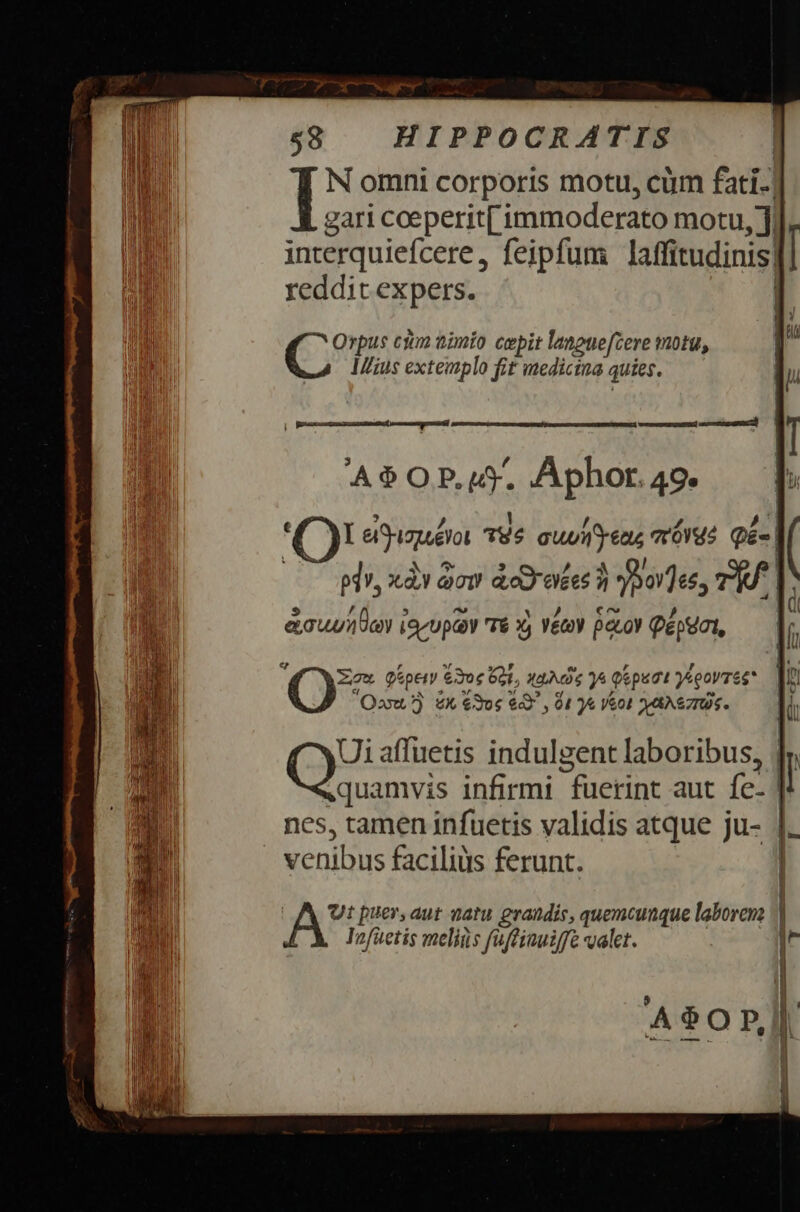 58 HIPPOCRATIS
IN omni corporis motu, cùm fati-
gari cœperit[immoderato motu,]
interquieſcere, ſeipſum laſſitudinis
reddit expers.
COrpus cùm nimio cœpit langueſcere motu,
Illius extemplo fit medicina quies.
ἈΦΟΡ. μθʹ. Aphor. 49.
ὉΙ εἰθισμένοι τοὺς συνήθεας πόνους φέ-
ρειν, κἂν ὦσιν ἀσθενέες ἢ γέροντες, τῶν
ἀσυνήθων ἰσχυρῶν τε καὶ νέων ῥᾷον φέρουσι,
ὍΣσα φέρειν ἔθος ἐστὶ, καλῶς γε φέρουσι γέροντες·
Ὅσσα δ' οὐκ ἔθος ἐσθ', οἵ γε νέοι χαλεπῶς.
QUi aſſuetis indulgent laboribus,
quamvis infirmi fuerint aut ſe-
nes, tamen inſuetis validis atque ju-
venibus faciliùs ferunt.
AUt puer, aut natu grandis, quemcunque laborem
Inſuetis meliùs ſuſtinuiſſe valet.
ἈΦΟΡ.